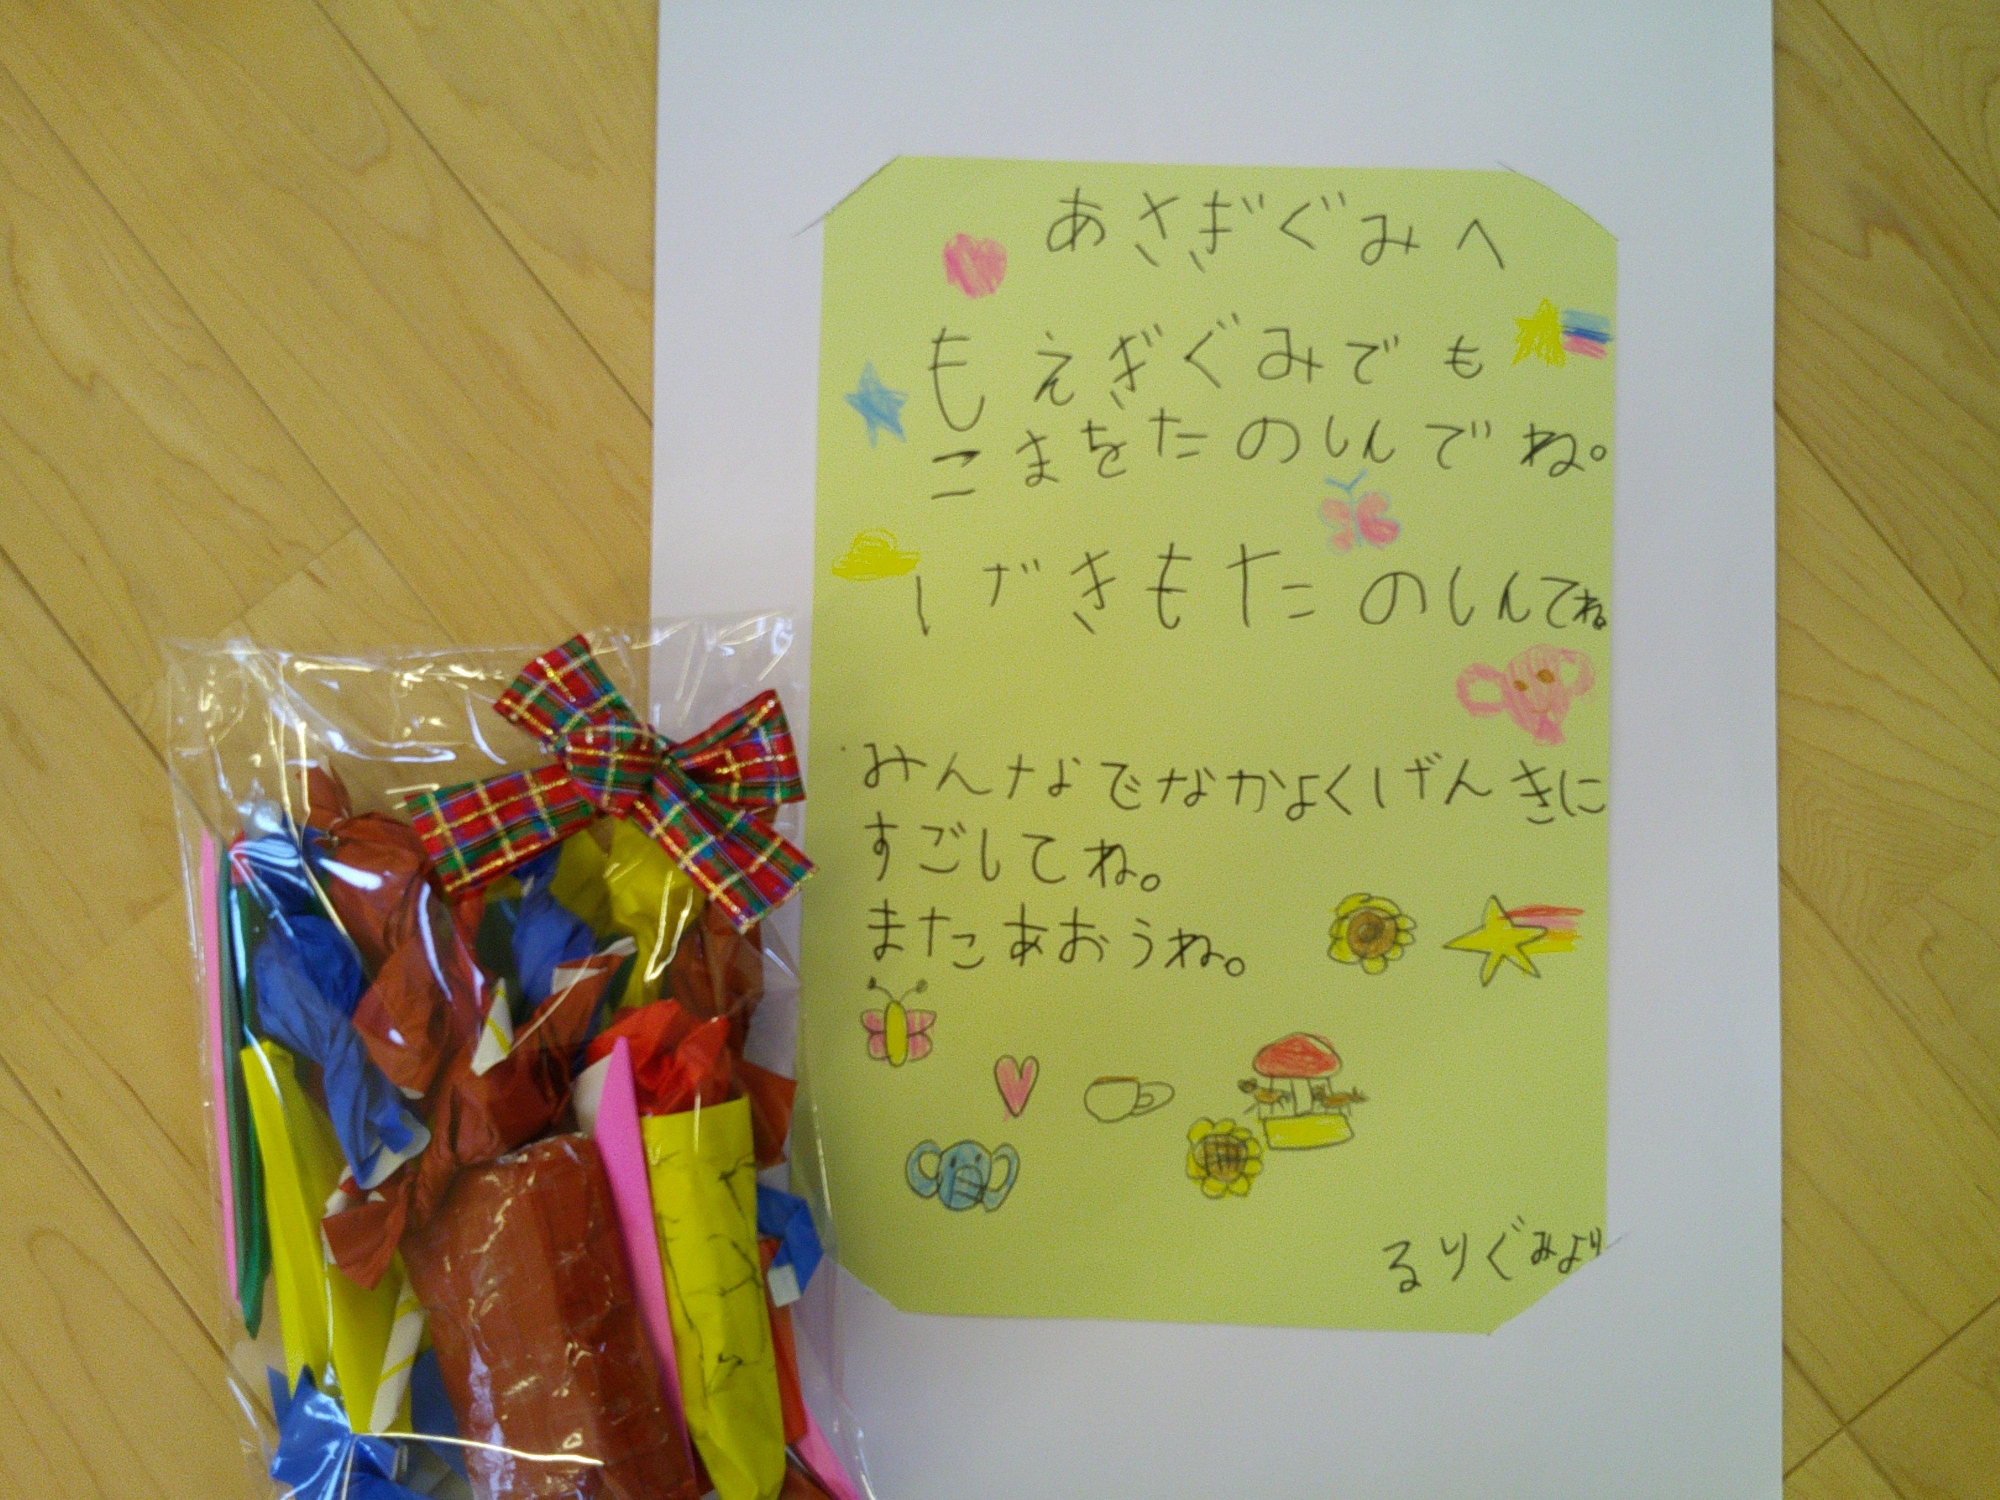 あさぎぐみへ
もえぎぐみでも
こまをたのしんでね。
げきもたのしんてね。
みんなでなかよくげんきに
すごしてね。
またあおうね。
るりぐみより